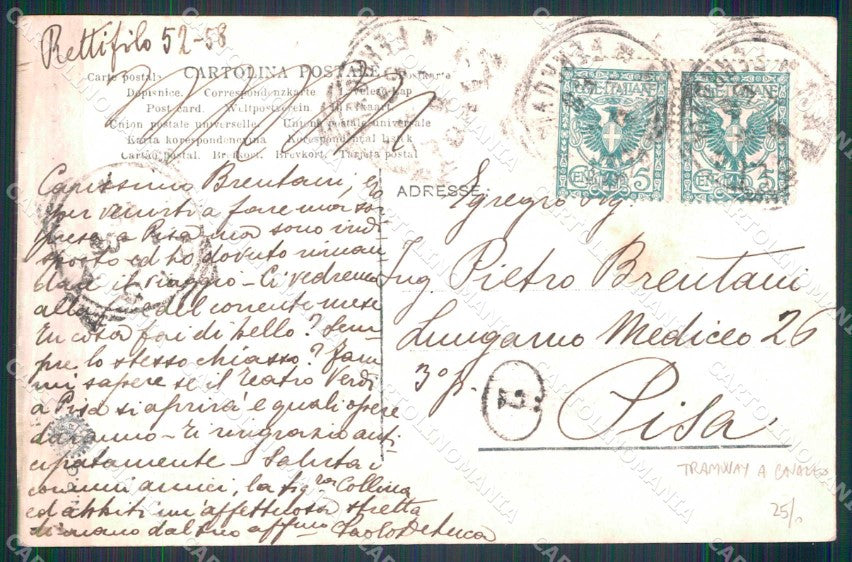 Rettifilo 52-58
Carte postale CARTOLINA POSTALE Postkarte
Dopisnice. Correspondenzkarte Levelező-Lap
Post card. Weltpostverein
Union postale universelle Unione postale universale
Karta korespondencyjna Korespondenční lístek
Cartão postal. Brefkort. Brevkort. Tarjeta postal
Carissimo Brentani, Io
per venirti a fare una sor
presa a Pisa ma sono indi
sposto ed ho dovuto riman
dare il viaggio - Ci vedremo
alla del corrente mese
Tu cosa fai di bello? Sem-
pre lo stesso chiasso? Fam
mi sapere se il Teatro Verdi
a Pisa si aprirà e quali opere
daranno - Ti ringrazio anti-
cipatamente - Salutami
comuni amici, la Sig.ra Collina
ed abbiti un'affettuosa stretta
di mano dal tuo affmo Paolo DeLuca
ADRESSE
Egregio Sig.
Ing. Pietro Brentani
Lungarno Mediceo 26
3º p.
Pisa
POSTE ITALIANE
CENT. 5
POSTE ITALIANE
CENT. 5
TRAMWAY A CAVALLO
25/.
CARTOLINOMANIA